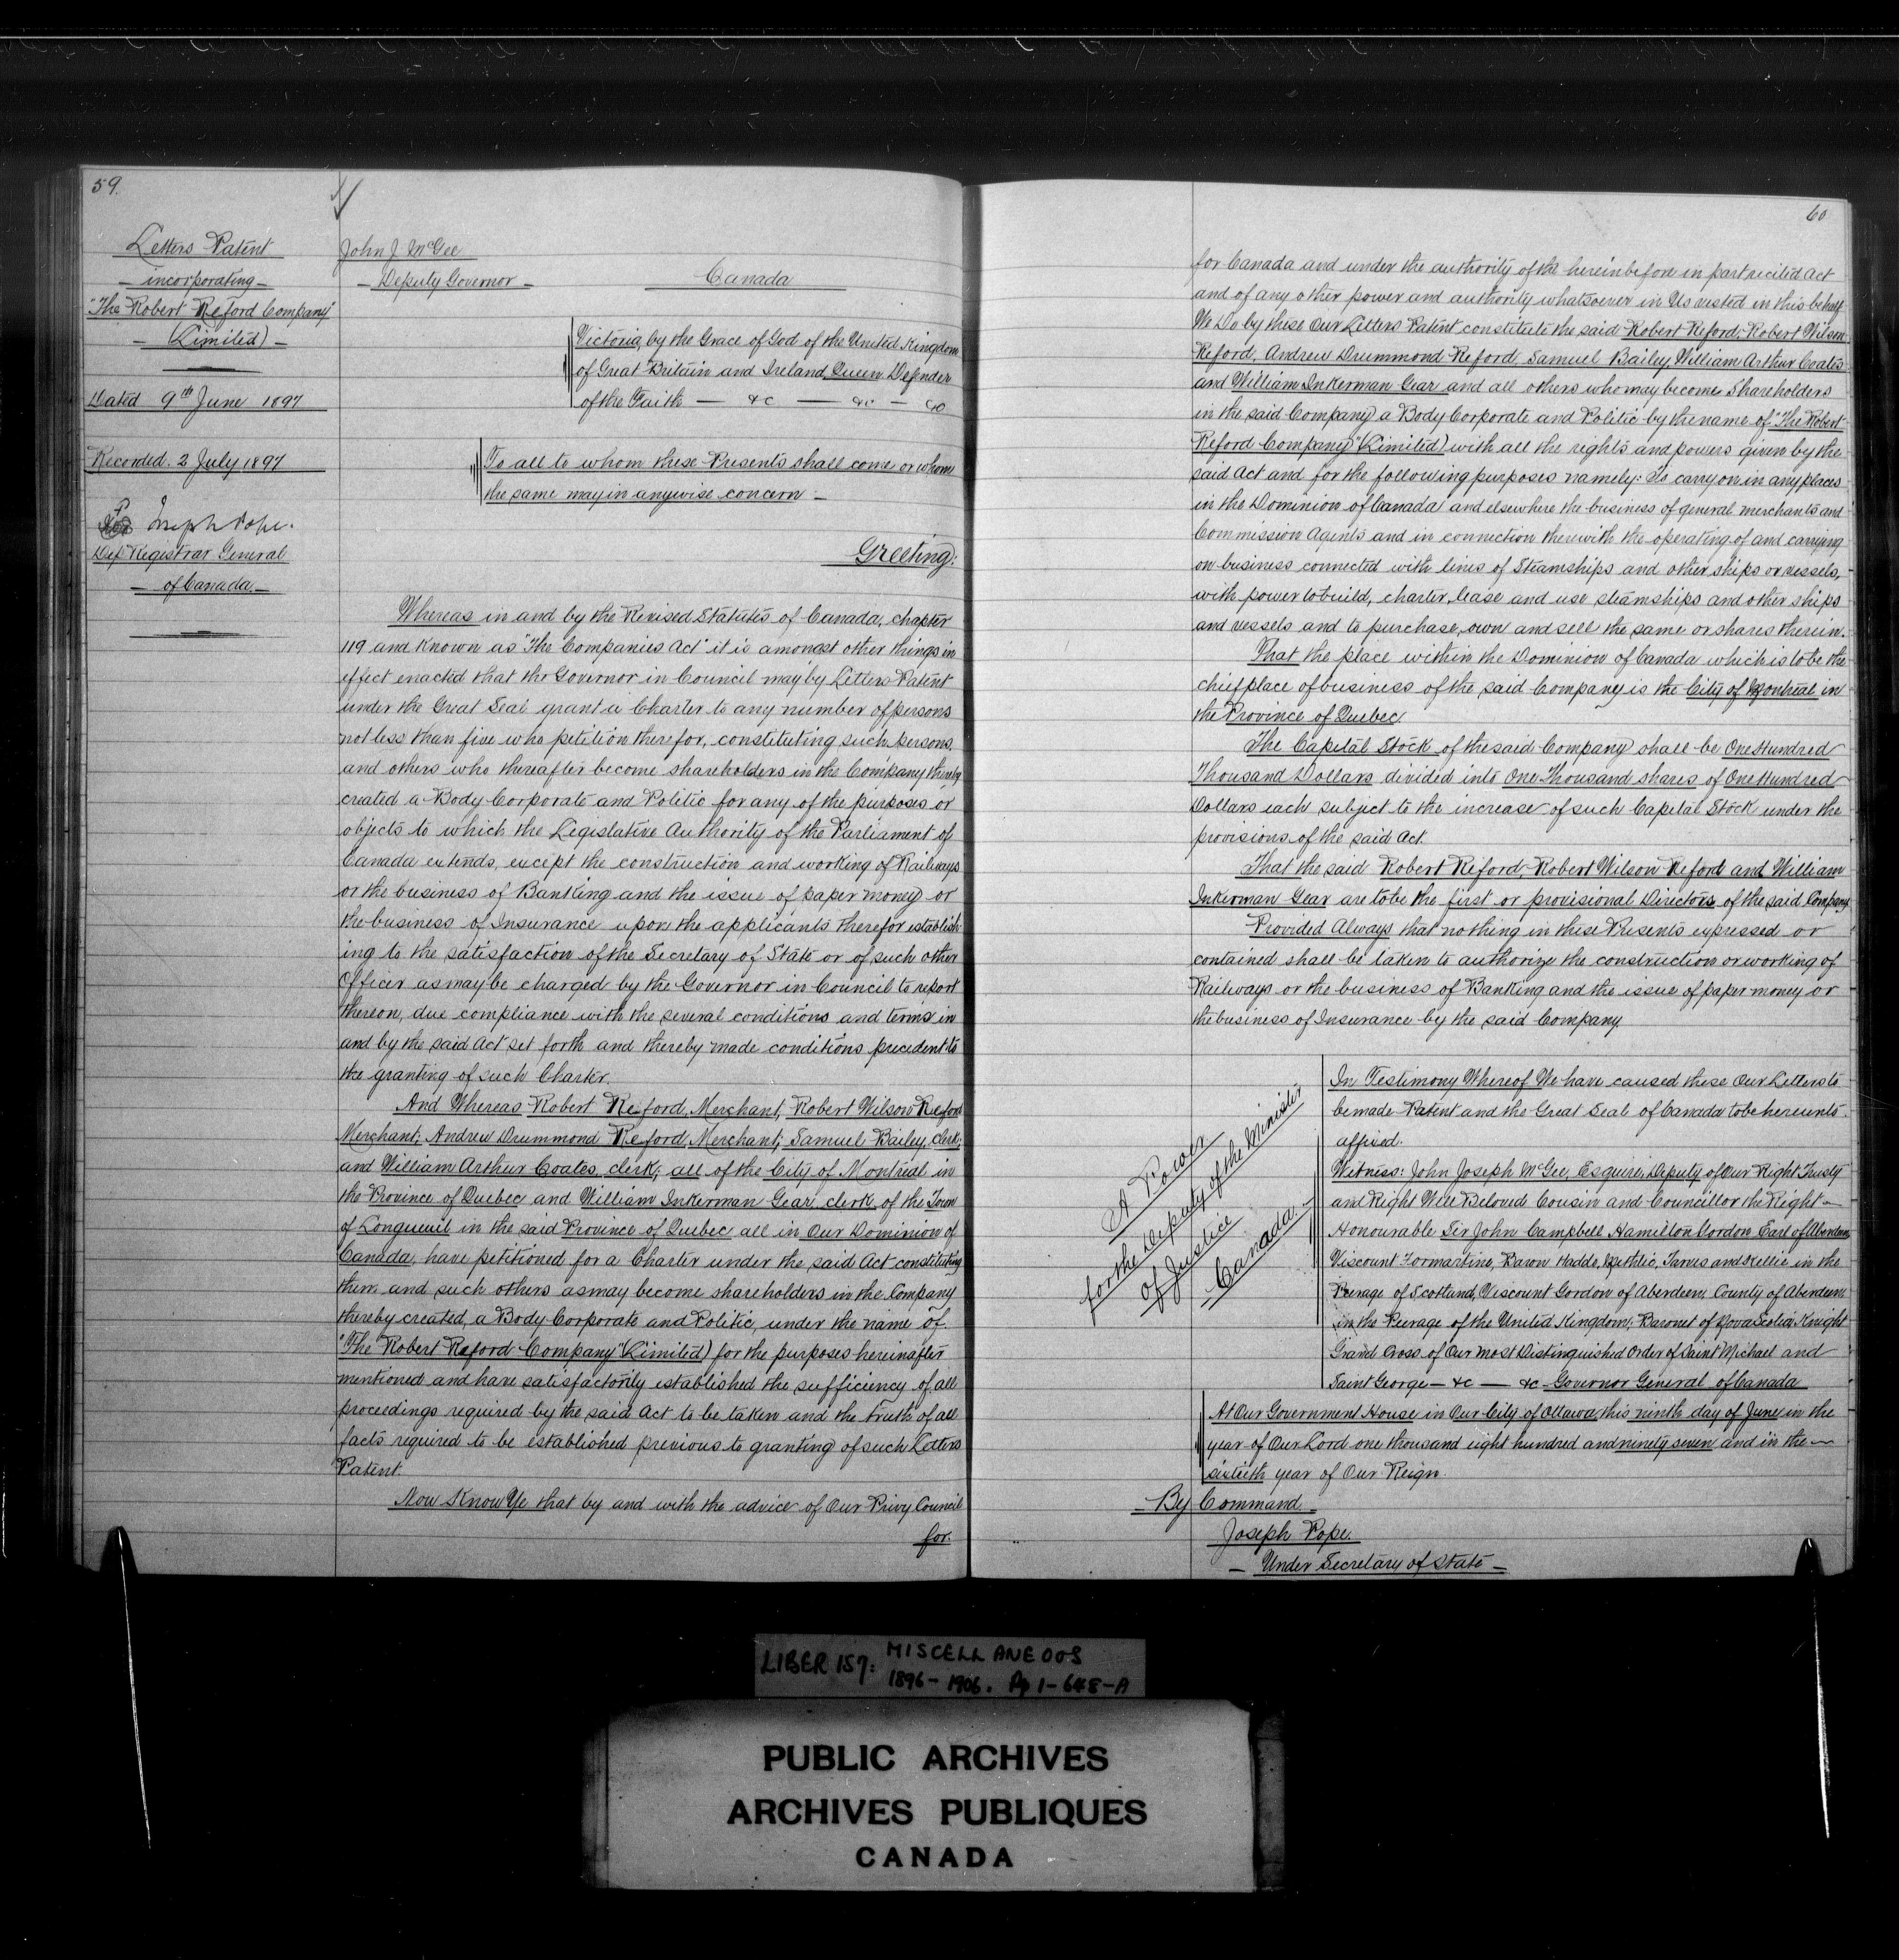 59.
Letters Patent
— incorporating —
"The Robert Reford Company"
— (Limited) —
Dated 9th June 1897
Recorded. 2 July 1897
Joseph Pope.
Dep. Registrar General
— of Canada —
John J. McGee
— Deputy Governor —
Canada
Victoria, by the Grace of God of the United Kingdom
of Great Britain and Ireland, Queen Defender
of the Faith — &c — &c — &c
To all to whom these Presents shall come or whom
the same may in anywise concern —
Greeting:
Whereas in and by the Revised Statutes of Canada, chapter
119 and known as "The Companies Act" it is amongst other things in
effect enacted that the Governor in Council may by Letters Patent
under the Great Seal grant a Charter to any number of persons
not less than five who petition therefor, constituting such persons,
and others who thereafter become shareholders in the Company thereby
created a Body Corporate and Politic for any of the purposes or
objects to which the Legislative Authority of the Parliament of
Canada extends, except the construction and working of Railways
or the business of Banking and the issue of paper money or
the business of Insurance upon the applicants therefor establish-
ing to the satisfaction of the Secretary of State or of such other
Officer as may be charged by the Governor in Council to report
thereon, due compliance with the several conditions and terms in
and by the said Act set forth and thereby made conditions precedent to
the granting of such Charter.
And Whereas Robert Reford, Merchant, Robert Wilson Reford
Merchant; Andrew Drummond Reford, Merchant; Samuel Bailey, clerk;
and William Arthur Coates, clerk; all of the City of Montreal in
the Province of Quebec and William Inkerman Gear, clerk of the Town
of Longueuil in the said Province of Quebec all in Our Dominion of
Canada, have petitioned for a Charter under the said Act constituting
them and such others as may become shareholders in the Company
thereby created, a Body Corporate and Politic, under the name of
"The Robert Reford Company" (Limited) for the purposes hereinafter
mentioned and have satisfactorily established the sufficiency of all
proceedings required by the said Act to be taken and the truth of all
facts required to be established previous to granting of such Letters
Patent.
Now Know Ye that by and with the advice of Our Privy Council
for.
60
for Canada and under the authority of the hereinbefore in part recited Act
and of any other power and authority whatsoever in Us vested in this behalf
We Do by these Our Letters Patent constitute the said Robert Reford, Robert Wilson
Reford, Andrew Drummond Reford, Samuel Bailey, William Arthur Coates
and William Inkerman Gear and all others who may become Shareholders
in the said Company a Body Corporate and Politic by the name of "The Robert
Reford Company" (Limited) with all the rights and powers given by the
said Act and for the following purposes namely: To carry on in any places
in the Dominion of Canada and elsewhere the business of general merchants and
Commission Agents and in connection therewith the operating of and carrying
on business connected with lines of Steamships and other ships or vessels,
with power to build, charter, lease and use steamships and other ships
and vessels and to purchase, own and sell the same or shares therein.
That the place within the Dominion of Canada which is to be the
chief place of business of the said Company is the City of Montreal in
the Province of Quebec.
The Capital Stock of the said Company shall be One Hundred
Thousand Dollars divided into One Thousand shares of One Hundred
Dollars each subject to the increase of such Capital Stock under the
provisions of the said Act.
That the said Robert Reford, Robert Wilson Reford and William
Inkerman Gear are to be the first or provisional Directors of the said Company
Provided Always that nothing in these Presents expressed or
contained shall be taken to authorize the construction or working of
Railways or the business of Banking and the issue of paper money or
the business of Insurance by the said Company.
A Power
for the Deputy of the Minister
of Justice
Canada
In Testimony Whereof We have caused these Our Letters to
be made Patent and the Great Seal of Canada to be hereunto
affixed.
Witness: John Joseph McGee, Esquire, Deputy of Our Right Trusty
and Right Well Beloved Cousin and Councillor the Right
Honourable Sir John Campbell Hamilton Gordon Earl of Aberdeen
Viscount Formartine, Baron Haddo, Methlic, Tarves and Kellie in the
Peerage of Scotland, Viscount Gordon of Aberdeen, County of Aberdeen
in the Peerage of the United Kingdom; Baronet of Nova Scotia, Knight
Grand Cross of Our Most Distinguished Order of Saint Michael and
Saint George — &c — &c Governor General of Canada
At Our Government House in Our City of Ottawa, this ninth day of June in the
year of Our Lord one thousand eight hundred and ninety seven and in the
sixtieth year of Our Reign.
By Command.
Joseph Pope.
— Under Secretary of State —
LIBER 157: MISCELLANEOUS
1896-1906. Pp 1-648-A
PUBLIC ARCHIVES
ARCHIVES PUBLIQUES
CANADA